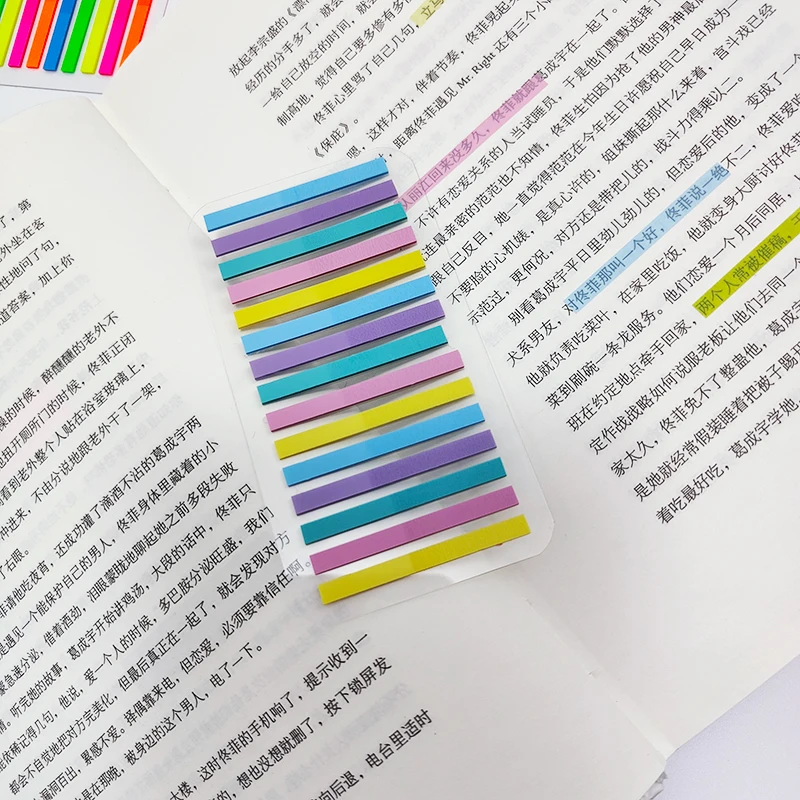 了，第
外坐在客
性地问了句，
道答案，加上你
醉醺醺的老外不
燥的时候，
他进开厕所门的时候，佟菲正闭
看到老外整个人贴在浴室玻璃上，
冲进来，不由分说地跟老外干了一架，
了右眼。
菲请他吃夜宵，还成功灌了滴酒不沾的葛成宇两
急速分泌，借着酒劲，泪眼蒙眬地聊起她之前多段失败
是遇见一个能保护自己的男人，佟菲身体里藏着的小
听完她的故事，葛成宇开始讲鸡汤，大段的话中，佟菲只
依稀记得几句，他说，爱一个人的时候，多巴胺分泌旺盛，我们
都会不自觉地把对方完美化，但最后真正在一起了，就会发现对方
漏洞百出，累感不爱。择偶靠来电，但恋爱，必须要靠信任啊。
是在那晚，被身边的这个男人，电了一下。
太楼，这时佟菲的手机响了，提示收到一
的，想也没想就删了，按下锁屏发
向后退，电台里适时
放起李宗盛的《
经历的分手多了，就会
一给自己放空的时间，就会
制高地，觉得自己要多修有多
佟菲心里骂了自己几句，立马
《保庇》。
嗯，这样才对，伴着节奏，佟菲晃起
距离佟菲遇见 Mr. Right 还有三个小
从丽江回来没多久，佟菲就跟葛成宇在一起了。
不许有恋爱关系的人当试睡员，于是他们默默选择了
连最亲密的范范也不知情，佟菲生怕因为抢了他的男神最
跟自己反目，她一直觉得范范在今年生日许愿祝自己早日成为一
不要脸的心机婊，是真心许的，姐妹撕起那什么来着，宫斗戏已经
示范过，更何况，对方还是带把儿的，战斗力得乘以二。
别看葛成宇平日里劲儿劲儿的，但恋爱后的他，变成了一个
犬系男友，对佟菲那叫一个好，佟菲说一绝不二，佟菲爱吃
他就负责吃菜叶，在家里吃饭，他就变身大厨讨好佟菲
菜到刷碗一条龙服务。他们恋爱一个月后同居，
班在约定地点牵手回家，两个人常被催稿，
定作战战略如何说服老板让他们去同一个
家太久，佟菲免不了整蛊他，葛成宇
是她就经常假装睡着把被子踢
着吃最好吃，葛成宇学他，